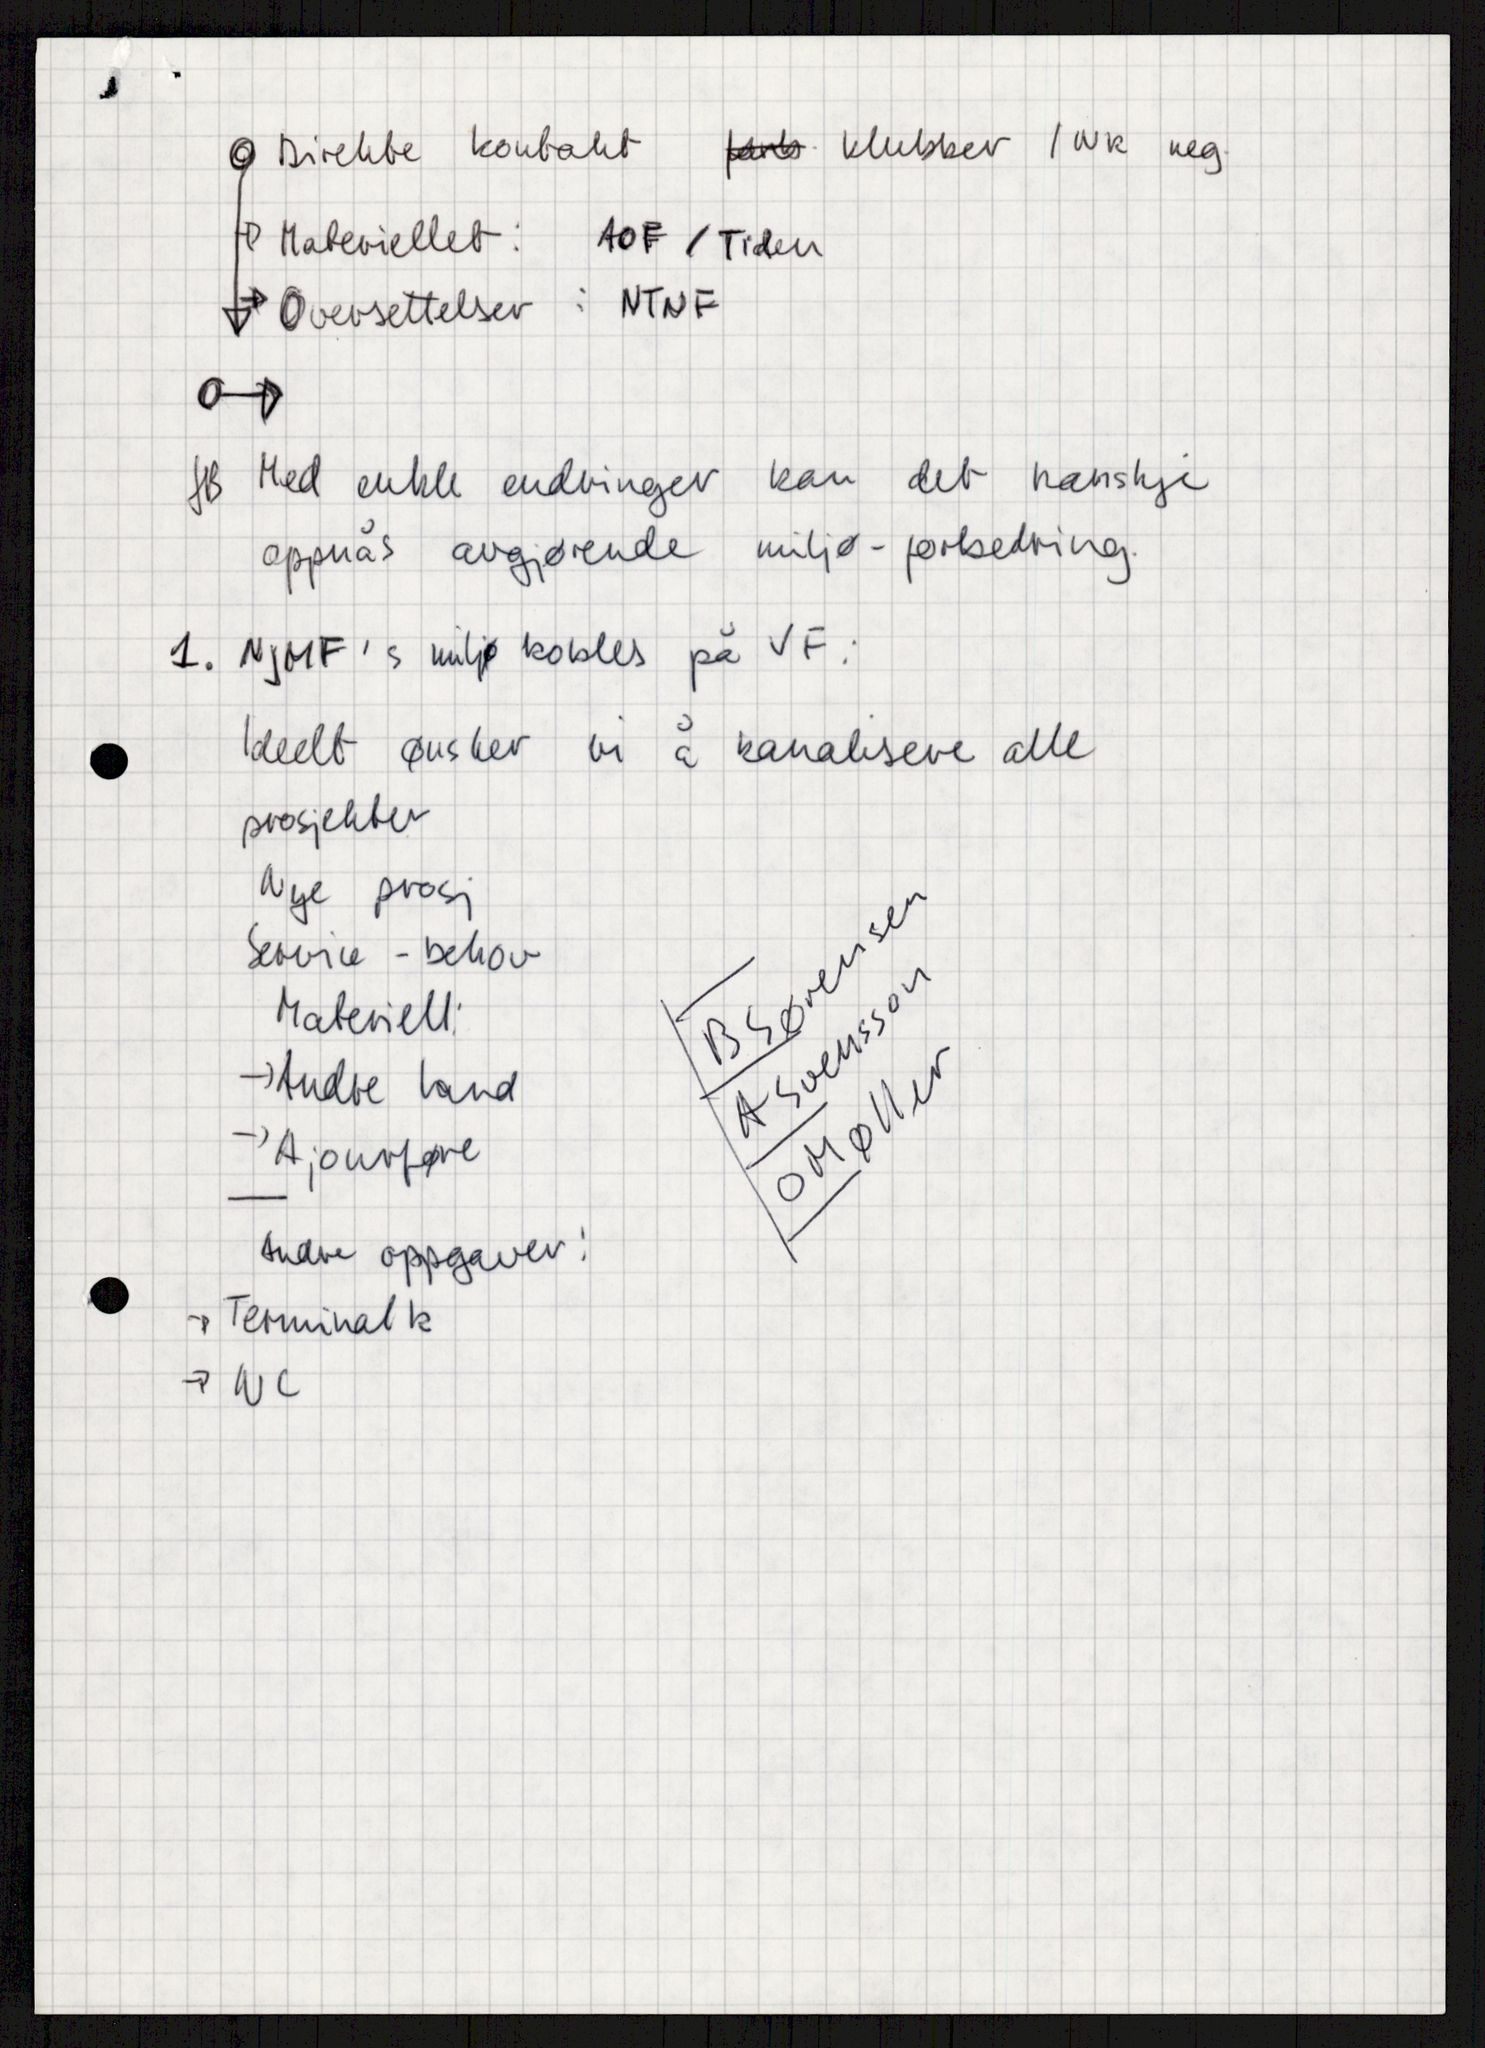 Direkte kontakt klubber / NR neg.
→ Materiellet: AOF / Tiden
→ Oversettelser: NTNF
Med enkle endringer kan det kanskje
oppnås avgjørende miljø-forbedring.
1. NJMF's miljø kobles på VF:
Ideelt ønsker vi å kanalisere alle
prosjekter
Nye prosj
Service - behov
Materiell:
→ Andre land
→ Ajourføre
Andre oppgaver:
→ Terminal k
→ NC
B Sørensen
A Svensson
O Møller